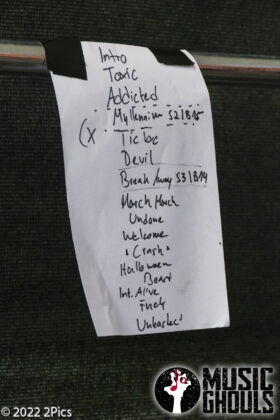 Intro
Toxic
Addicted
Myllennium S2/8:15
(X Tic Toc
Devil
Break Away S3/8:14
March March
Undone
Welcome
Crash
Halloween
Beast
Int. Alive
Fuck
© 2022 2Pics
MUSIC
GHOULS